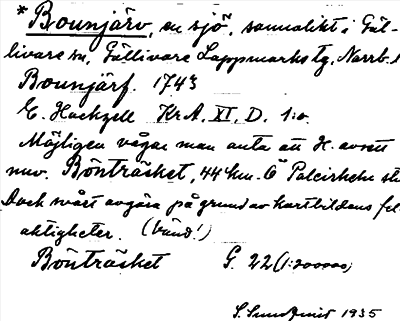 * Bounjärv, en sjö, sannolikt i Gäl-
livare sn, Gällivare Lappmarks tg, Narrb.
Bounjärf. 1743
E. Hackzell KrA. XI. D. 1:a
Möjligen vågar man anta att H. avsett
nuv. Bönträsket, 44 km. Ö Palcirkeln
Dock svårt avgöra på grund av kartbildens fel-
aktigheter. (Vänd!)
Bönträsket G. 22 (1:200000)
S. Sundqvist 1935